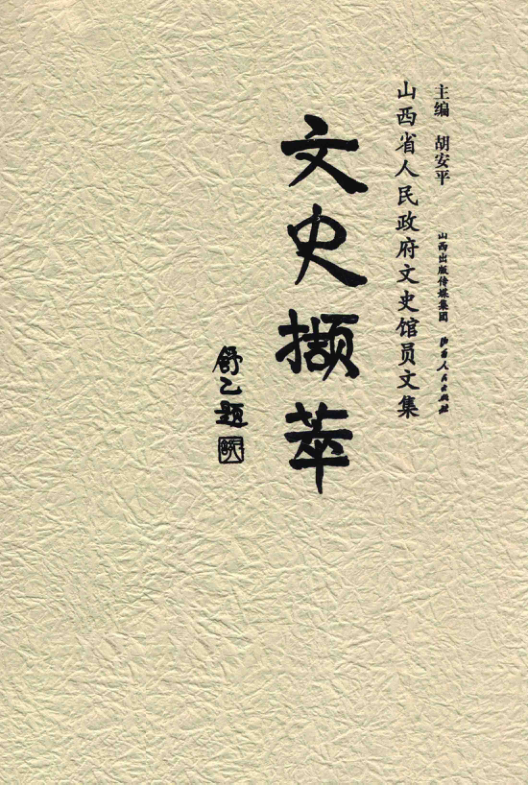 主编 胡安平 山西出版传媒集团 山西人民出版社
山西省人民政府文史馆员文集
文史撷萃
舒乙题